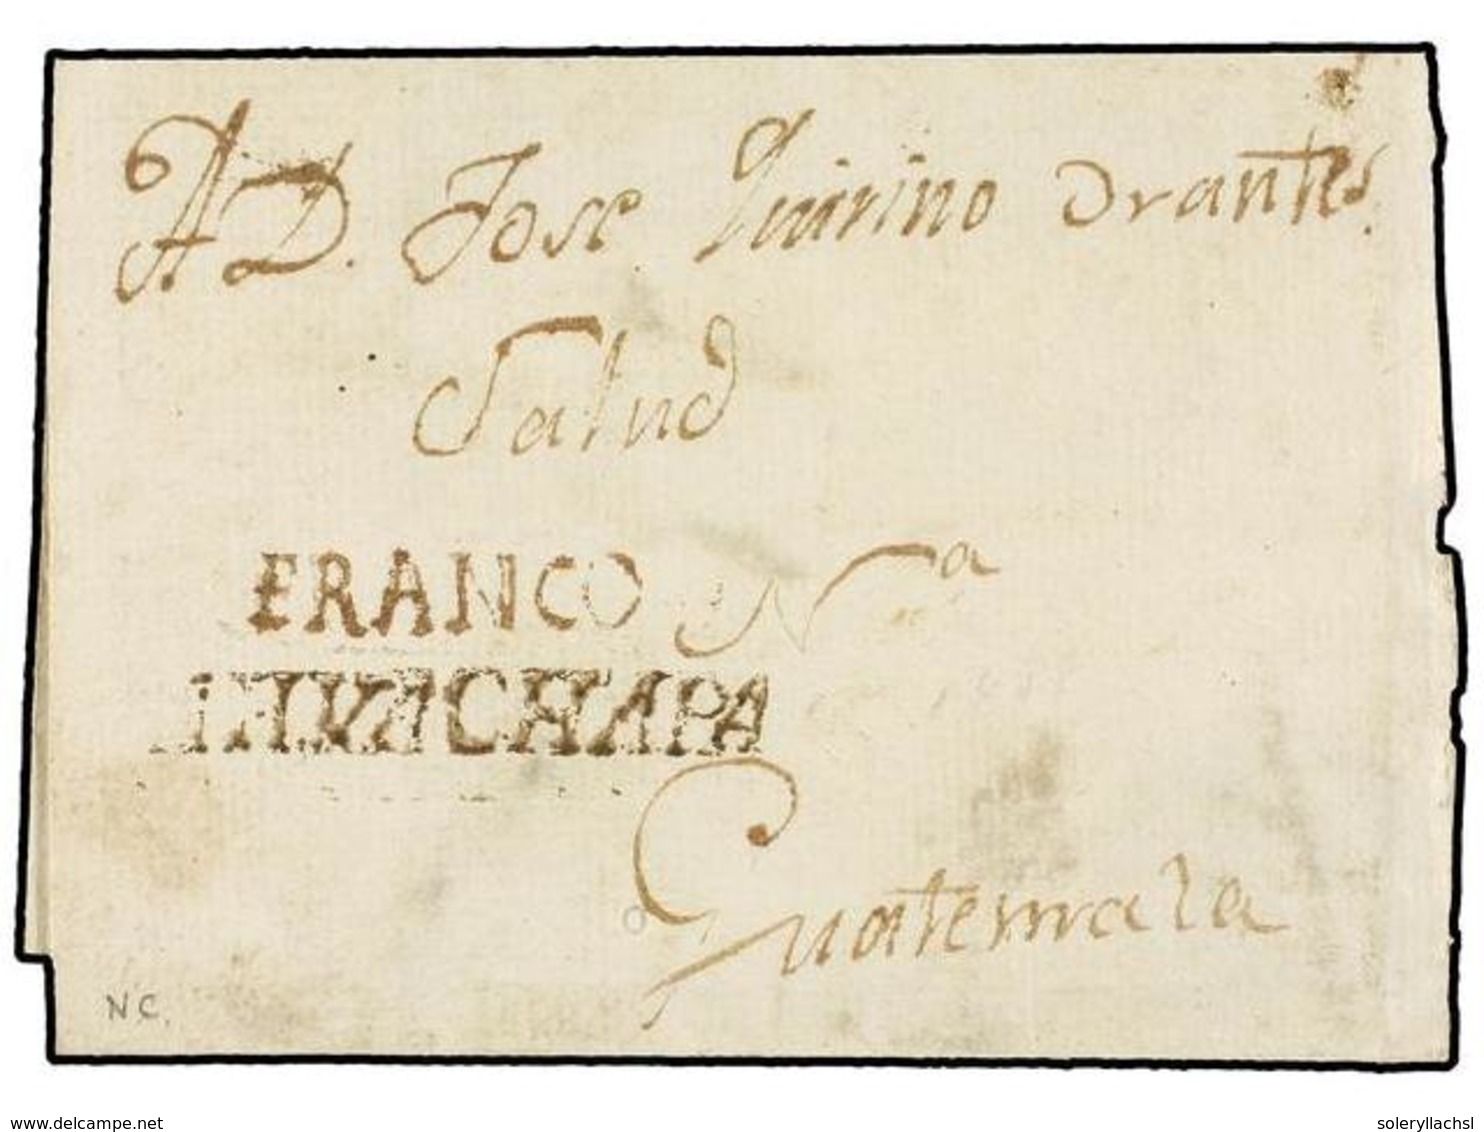 A D. Jose Quirino Orantes.
Salud
FRANCO Na
AHVACHAPA
Guatemala
N C.
www.delcampe.net
soleryllachsl